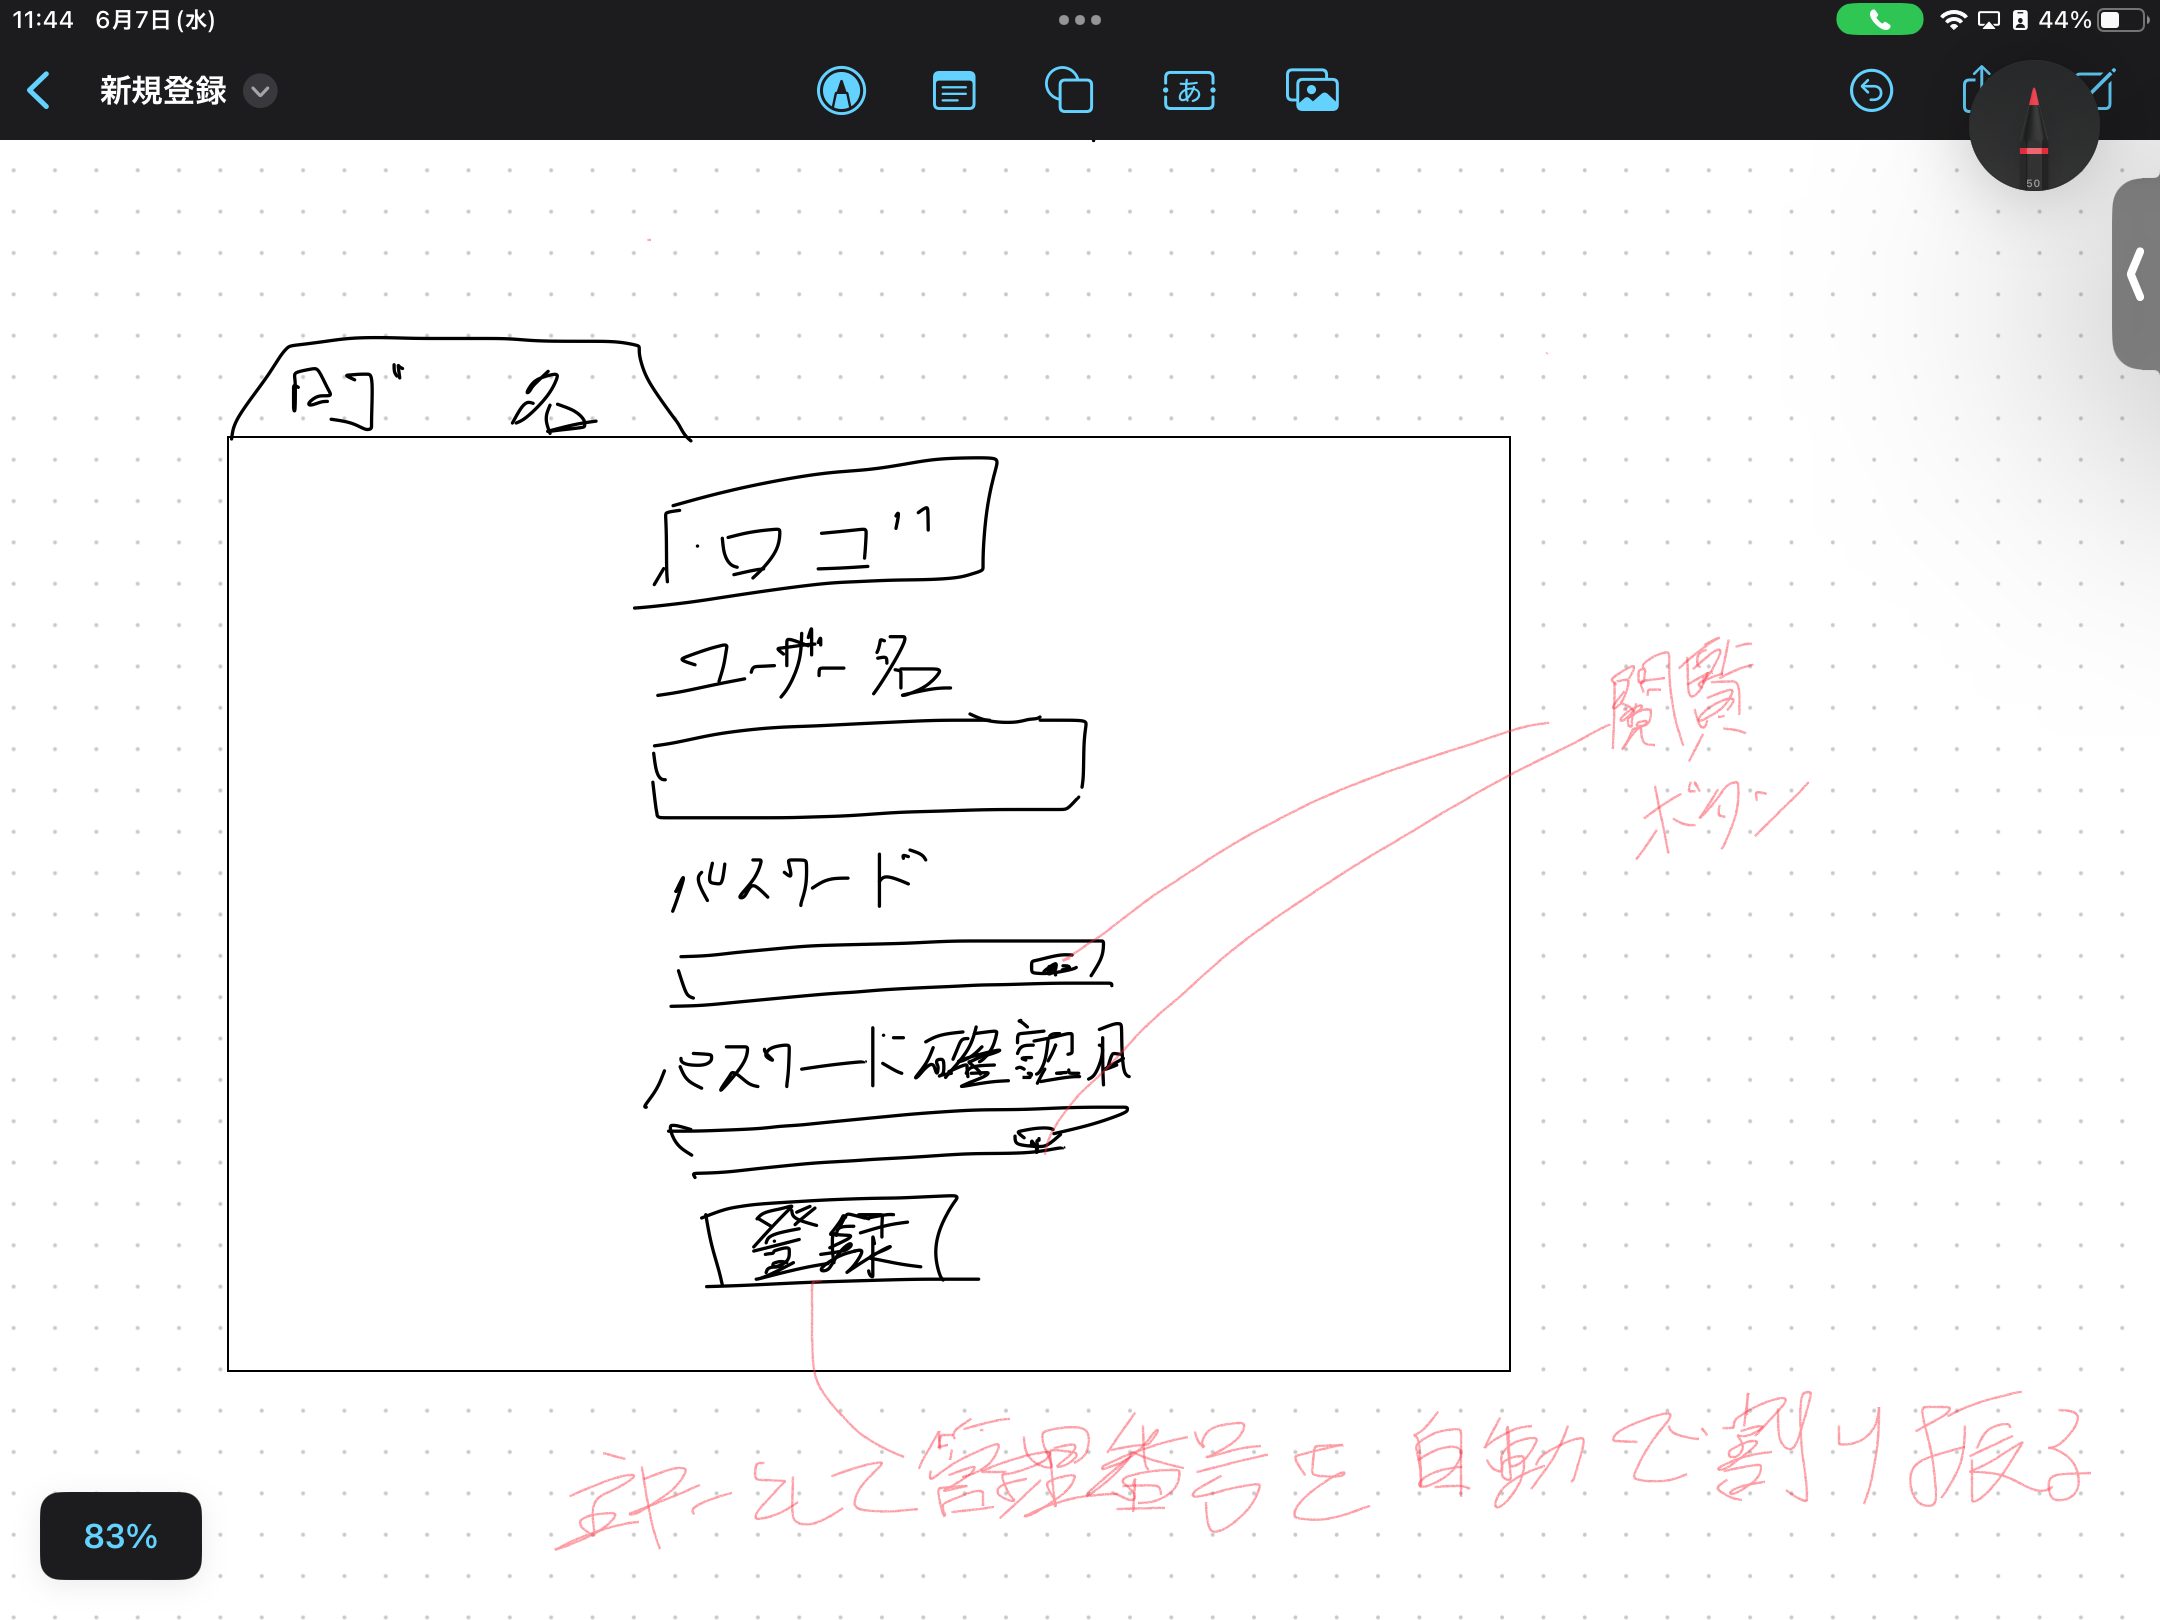 11:44 6月7日(水) 44%
新規登録
あ
50
名
ロゴ
ユーザー名
パスワード
パスワード確認用
登録
閲覧
ボタン
主キーとして管理番号を自動で割り振る
83%